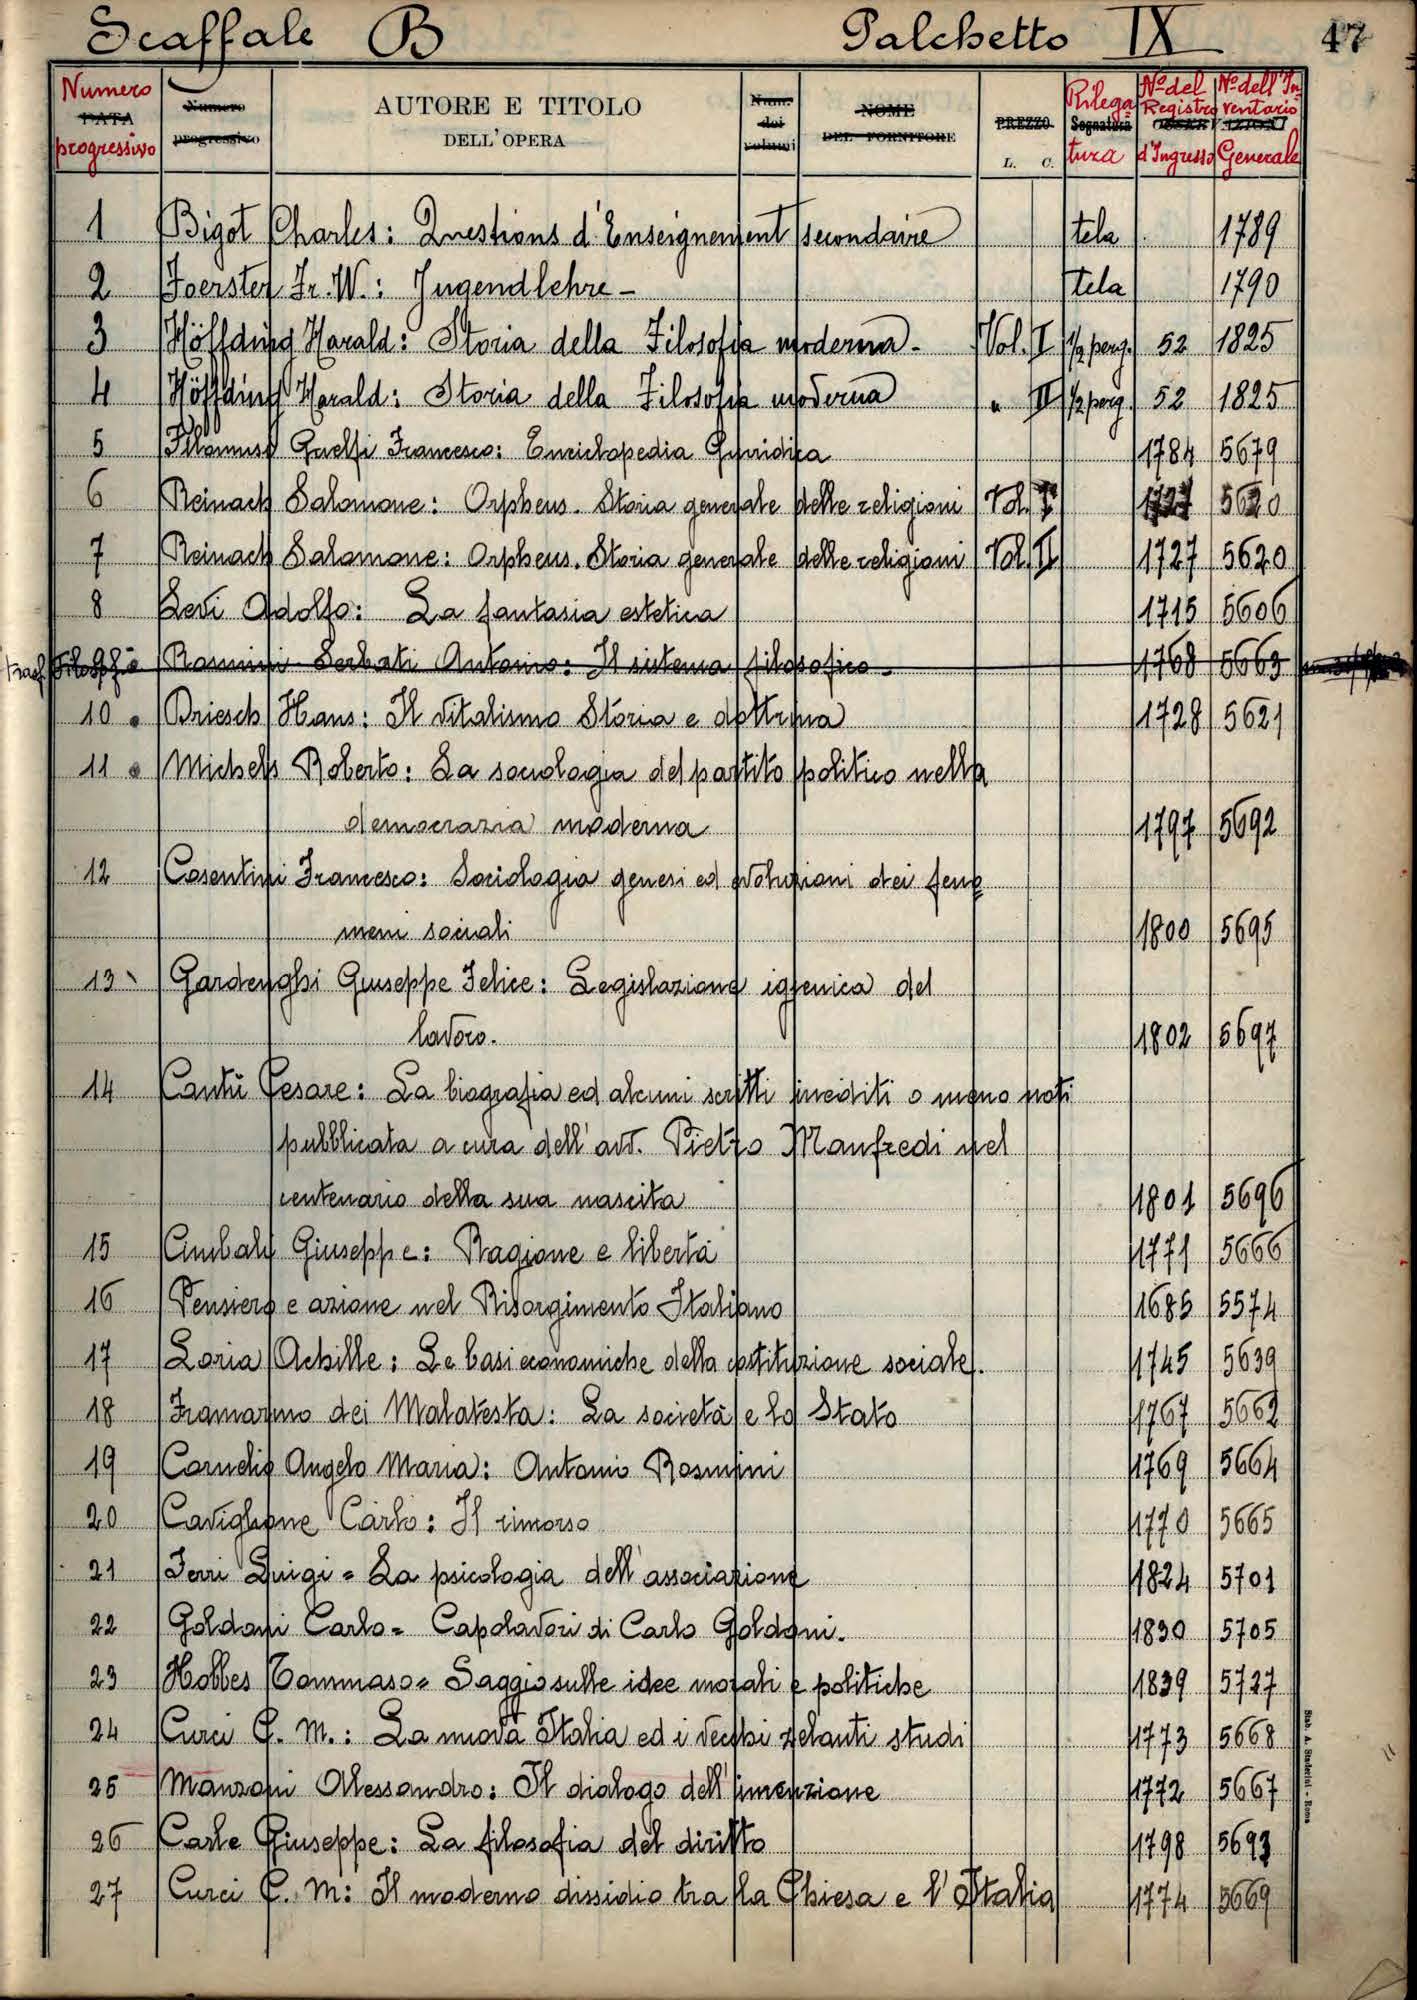 Scaffale B Palchetto IX 47
Numero progressivo AUTORE E TITOLO DELL'OPERA Rilegatura Nº del Registro d'Ingresso Nº dell'Inventario Generale
DATA Numero progressivo Num. dei volumi NOME DEL FORNITORE PREZZO L. C. Segnatura
1 Bigot Charles: Questions d'Enseignement secondaire tela 1789
2 Foerster Fr. W.: Jugendlehre - tela 1790
3 Höffding Harald: Storia della Filosofia moderna - Vol. I 1/2 perg. 52 1825
4 Höffding Harald: Storia della Filosofia moderna " II 1/2 perg. 52 1825
5 Filomusi Guelfi Francesco: Enciclopedia Giuridica 1784 5679
6 Reinach Salomone: Orpheus. Storia generale delle religioni Vol. I 1727 5620
7 Reinach Salomone: Orpheus. Storia generale delle religioni Vol. II 1727 5620
8 Levi Adolfo: La fantasia estetica 1715 5606
9 Rosmini Serbati Antonio: Il sistema filosofico. 1768 5663
10 Driesch Hans: Il vitalismo Storia e dottrina 1728 5621
11 Michels Roberto: La sociologia del partito politico nella
democrazia moderna 1797 5692
12 Cosentini Francesco: Sociologia genesi ed evoluzioni dei feno
meni sociali 1800 5695
13 Gardenghi Giuseppe Felice: Legislazione igienica del
lavoro. 1802 5697
14 Cantù Cesare: La biografia ed alcuni scritti inediti o meno noti
pubblicata a cura dell'avv. Pietro Manfredi nel
centenario della sua nascita 1801 5696
15 Cimbali Giuseppe: Ragione e libertà 1771 5666
16 Pensiero e azione nel Risorgimento Italiano 1685 5574
17 Loria Achille: Le basi economiche della costituzione sociale. 1745 5639
18 Framarino dei Malatesta: La società e lo Stato 1767 5662
19 Cornelio Angelo Maria: Antonio Rosmini 1769 5664
20 Caviglione Carlo: Il rimorso 1770 5665
21 Ferri Luigi = La psicologia dell'associazione 1824 5701
22 Goldoni Carlo = Capolavori di Carlo Goldoni. 1830 5705
23 Hobbes Tommaso = Saggio sulle idee morali e politiche 1839 5727
24 Curci C. M.: La nuova Italia ed i vecchi zelanti studi 1773 5668
25 Manzoni Alessandro: Il dialogo dell'invenzione 1772 5667
26 Carle Giuseppe: La filosofia del diritto 1798 5693
27 Curci C. M: Il moderno dissidio tra la Chiesa e l'Italia 1774 5669
Stab. A. Staderini - Roma